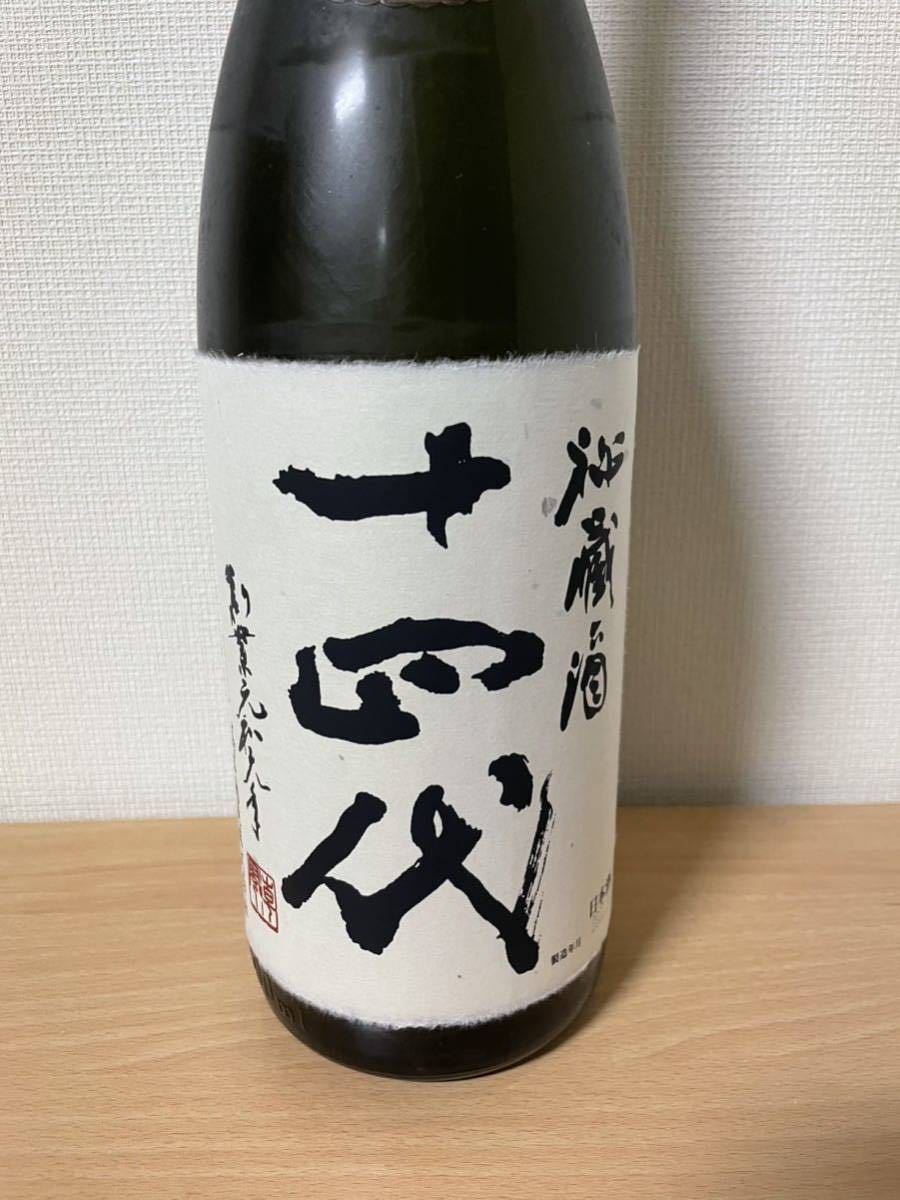 秘蔵酒
十四代
創業元和元年
製造年月
日本酒